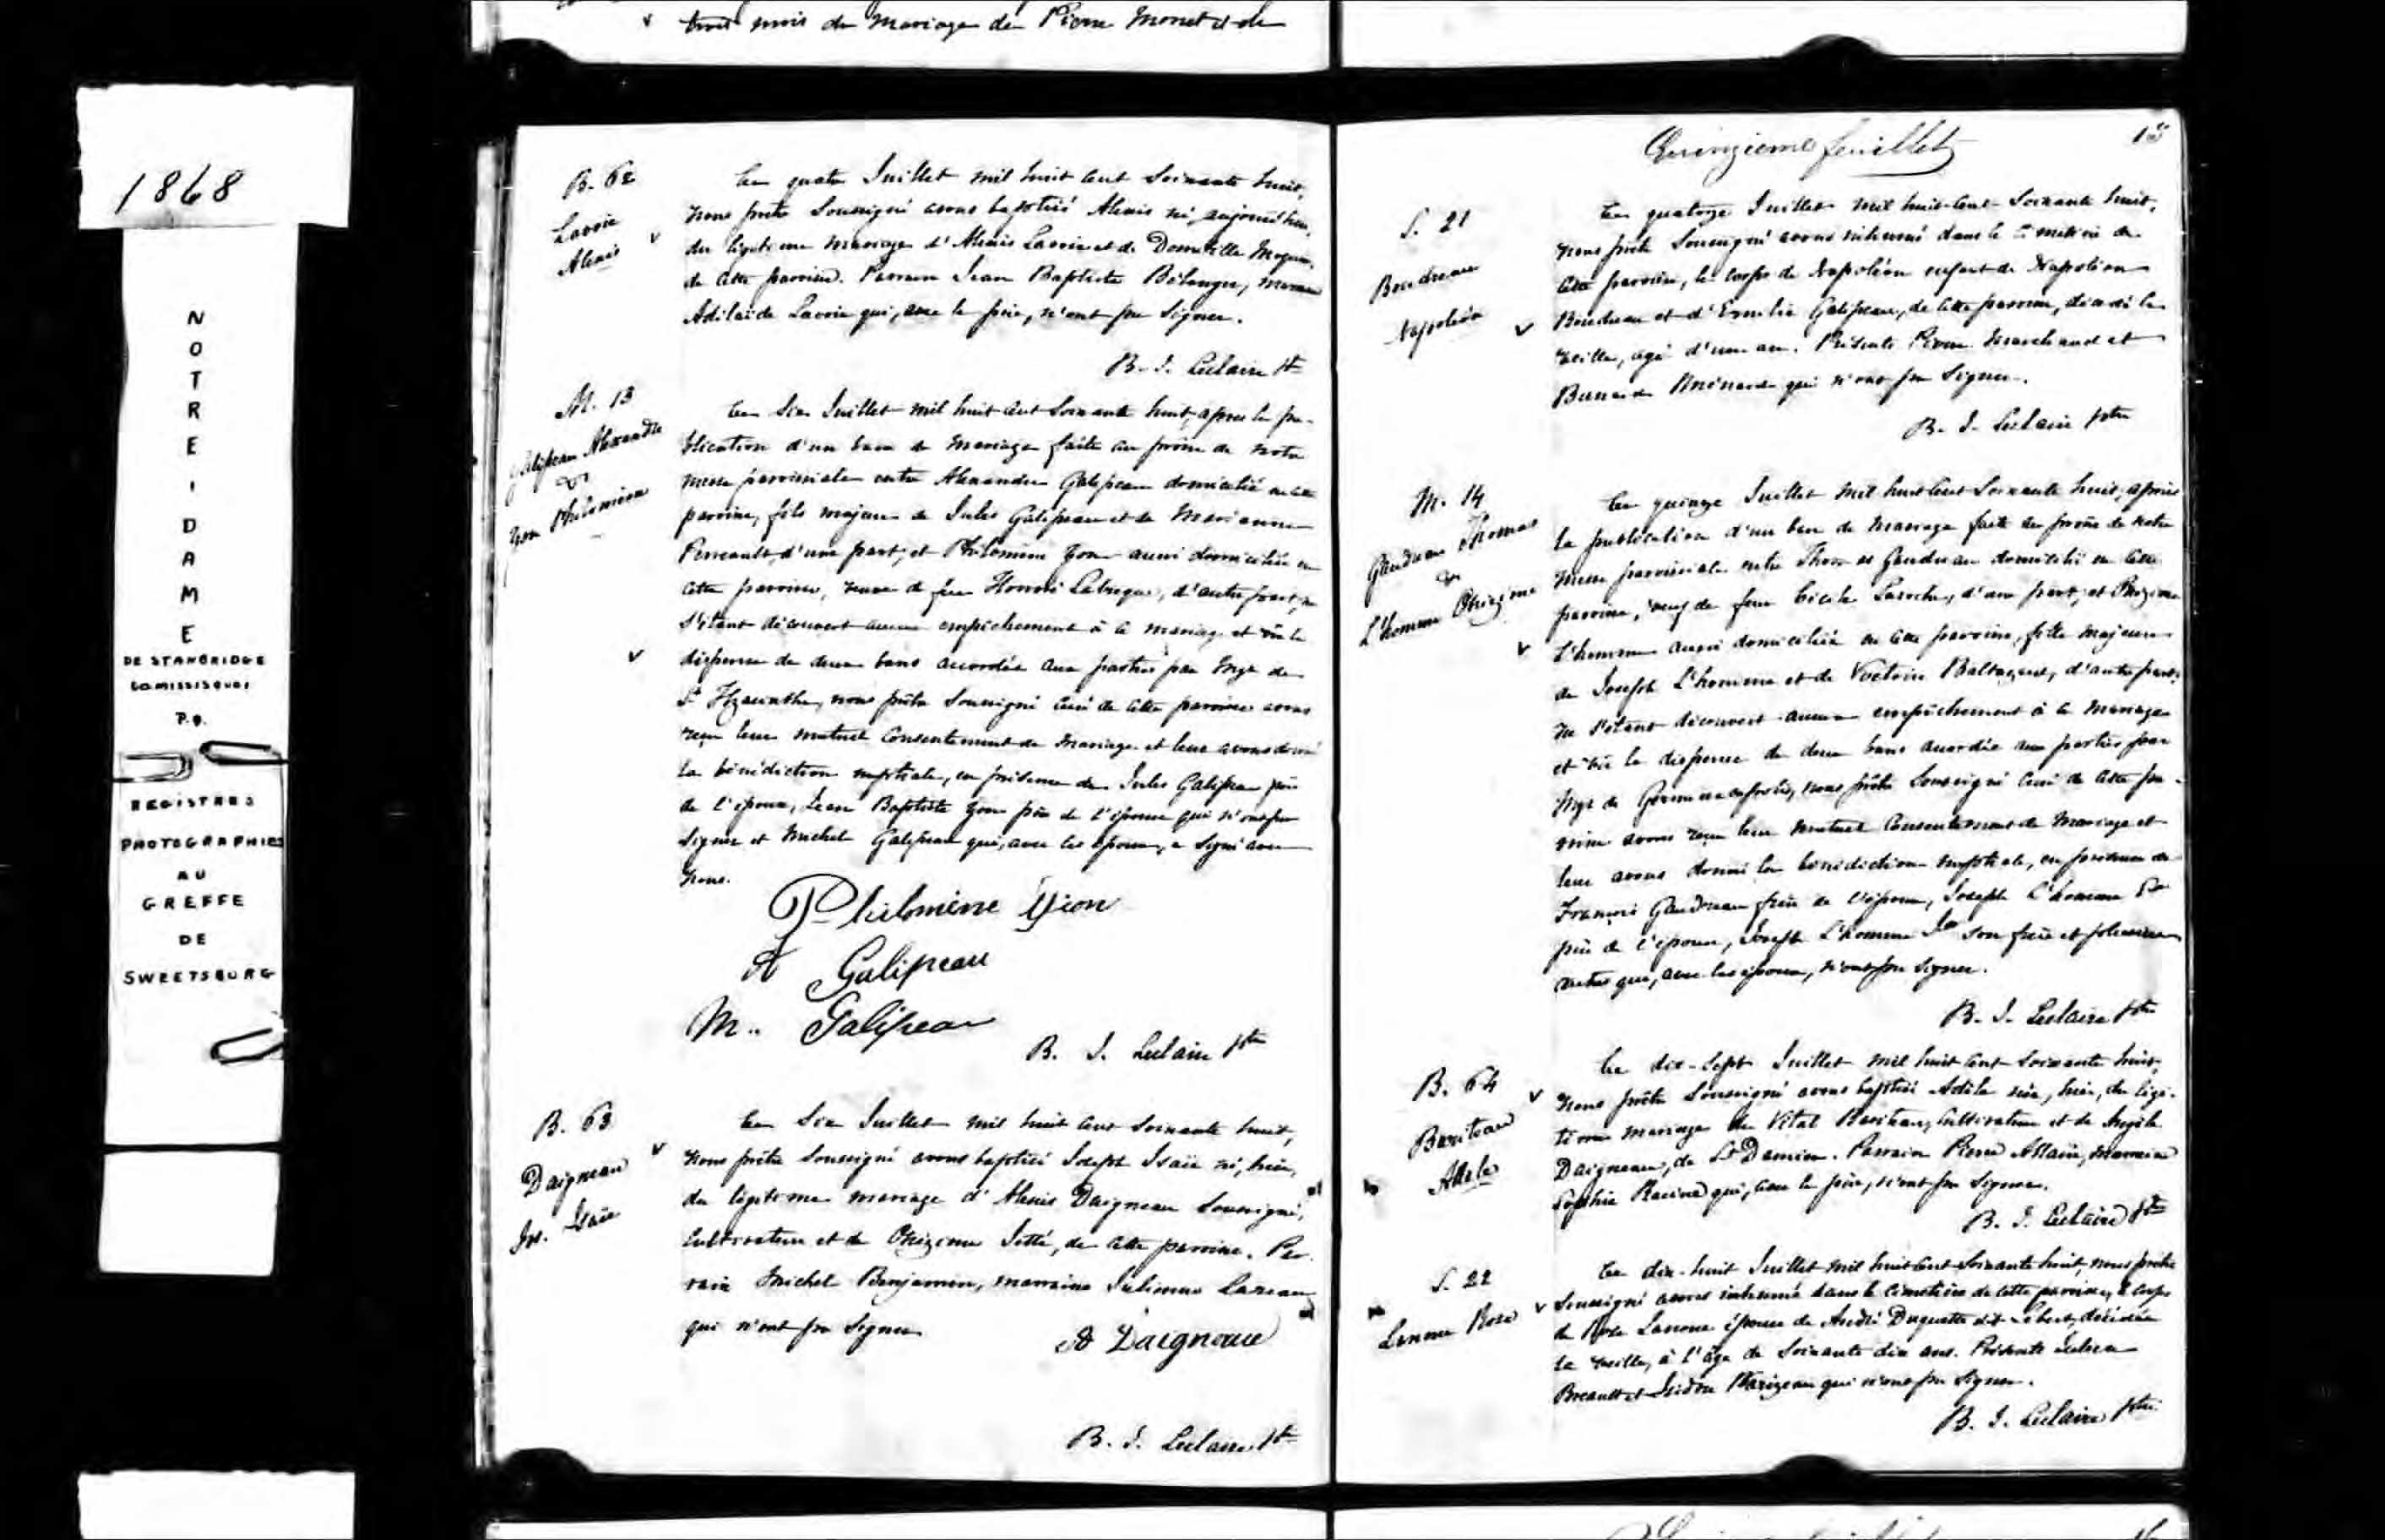 trois mois du mariage de Pierre Monet et de
1868
NOTRE DAME
DE STANBRIDGE
Co MISSISQUOI
P.Q.
REGISTRES
PHOTOGRAPHIES
AU
GREFFE
DE
SWEETSBURG
B. 62
Lavoie
Alexis
Ce quatre Juillet mil huit cent soixante huit,
nous prêtre soussigné avons baptisé Alexis né, aujourd'hui,
du légitime mariage d'Alexis Lavoie et de Domitille
de cette paroisse. Parrain Jean Baptiste Bélanger, marraine
Adélaïde Lavoie qui, avec le père, n'ont pu signer.
B. J. Leclaire Ptre
M. 13
Galipeau Alexandre
&
Yon Philomène
Ce six Juillet mil huit cent soixante huit, après la pu-
blication d'un ban de mariage faite au prône de notre
messe paroissiale entre Alexandre Galipeau domicilié en cette
paroisse, fils majeur de Jules Galipeau et de Marianne
Perreault, d'une part, et Philomène Yon aussi domiciliée en
cette paroisse, veuve de feu Honoré Labrèque, d'autre part, ne
s'étant découvert aucun empêchement à ce mariage et vû la
dispense de deux bans accordée aux parties par Mgr de
St Hyacinthe, nous prêtre soussigné curé de cette paroisse avons
reçu leur mutuel consentement de mariage et leur avons donné
la bénédiction nuptiale, en présence de Jules Galipeau père
de l'époux, Jean Baptiste Yon père de l'épouse qui n'ont pu
signer et Michel Galipeau qui, avec les époux, a signé avec
nous.
Philomène Yion
A Galipeau
M.. Galipeau
B. J. Leclaire ptre
B. 63
Daigneau
Jos. Isaïe
Ce six Juillet mil huit cent soixante huit,
nous prêtre soussigné avons baptisé Joseph Isaïe né, hier,
du légitime mariage d'Alexis Daigneau soussigné,
cultivateur et de Onézime Jetté, de cette paroisse. Par-
rain Michel Benjamin, marraine Julienne Lareau
qui n'ont pu signer.
A Daigneau
B. J. Leclaire Ptre
Quinzieme feuillet
15
S. 21
Boudreau
Napoléon
Ce quatorze Juillet mil huit-cent-soixante huit,
nous prêtre soussigné avons inhumé dans le cimetière de
cette paroisse, le corps de Napoléon enfant de Napoléon
Boudreau et d'Emilie Galipeau, de cette paroisse, décédé la
veille, agé d'un an. Présents Pierre Marchand et
Ménard qui n'ont pu signer.
B. J. Leclaire ptre
M. 14
Gaudreau Thomas
&
L'homme Onézime
Ce quinze Juillet mil huit cent soixante huit, après
la publication d'un ban de mariage faite au prône de notre
messe paroissiale entre Thomas Gaudreau domicilié en cette
paroisse, veuf de feue Cécile Laroche, d'une part, et Onézime
L'homme aussi domiciliée en cette paroisse, fille majeure
de Joseph L'homme et de Victoire, d'autre part,
ne s'étant découvert aucun empêchement à ce mariage
et vû la dispense de deux bans accordée aux parties par
Mgr de Germanicopolis, nous prêtre soussigné curé de cette pa-
roisse avons reçu leur mutuel consentement de mariage et
leur avons donné la bénédiction nuptiale, en présence de
François Gaudreau frère de l'époux, Joseph L'homme Sr
père de l'épouse, Joseph L'homme Jr son frère et plusieurs
autres qui, avec les époux, n'ont pu signer.
B. J. Leclaire Ptre
B. 64
Bariteau
Adèle
Ce dix-sept Juillet mil huit cent soixante huit,
nous prêtre soussigné avons baptisé Adèle née, hier, du légi-
time mariage de Vital Bariteau, cultivateur et de Angèle
Daigneau, de St Damien. Parrain Pierre Allain, marraine
Sophie Racine qui, avec le père, n'ont pu signer.
B. J. Leclaire Ptre
S. 22
Lanoue Rose
Ce dix-huit Juillet mil huit cent soixante huit, nous prêtre
soussigné avons inhumé dans le cimetière de cette paroisse, le corps
de Rose Lanoue épouse de André Duquette dit Lebert, décédée
la veille, à l'âge de soixante dix ans. Présents Julien
et Isidore qui n'ont pu signer.
B. J. Leclaire ptre